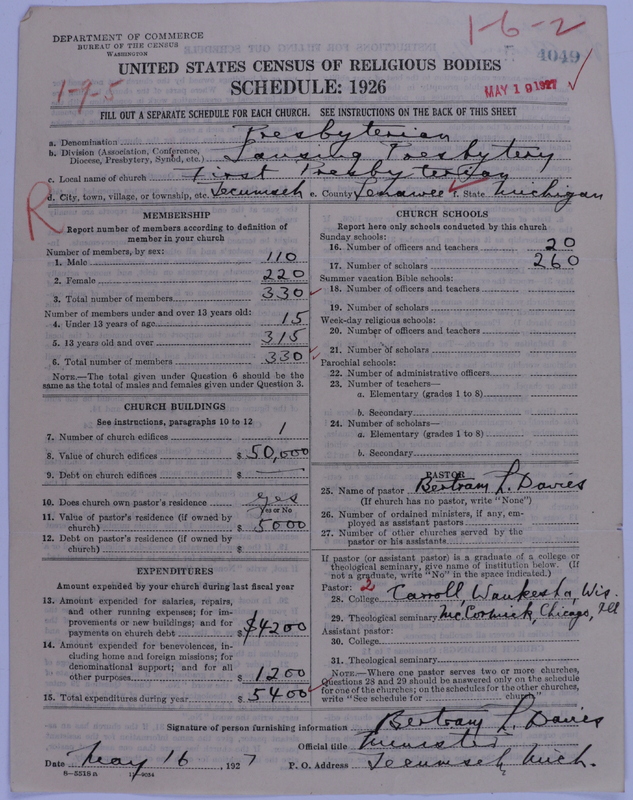 DEPARTMENT OF COMMERCE
BUREAU OF THE CENSUS
WASHINGTON
1-6-2
4049
1-9-5
UNITED STATES CENSUS OF RELIGIOUS BODIES
SCHEDULE: 1926
MAY 19 1927
FILL OUT A SEPARATE SCHEDULE FOR EACH CHURCH. SEE INSTRUCTIONS ON THE BACK OF THIS SHEET
a. Denomination Presbyterian
b. Division (Association, Conference, Diocese, Presbytery, Synod, etc.) Lansing Presbytery
c. Local name of church First Presbyterian
d. City, town, village, or township, etc. Tecumseh e. County Lenawee f. State Michigan
R
MEMBERSHIP
Report number of members according to definition of
member in your church
Number of members, by sex:
1. Male 110
2. Female 220
3. Total number of members 330
Number of members under and over 13 years old:
4. Under 13 years of age 15
5. 13 years old and over 315
6. Total number of members 330
NOTE.—The total given under Question 6 should be the
same as the total of males and females given under Question 3.
CHURCH BUILDINGS
See instructions, paragraphs 10 to 12
7. Number of church edifices 1
8. Value of church edifices $ 50,000
9. Debt on church edifices $ —
10. Does church own pastor's residence yes
Yes or No
11. Value of pastor's residence (if owned by
church) $ 5000
12. Debt on pastor's residence (if owned by
church) $
EXPENDITURES
Amount expended by your church during last fiscal year
13. Amount expended for salaries, repairs,
and other running expenses; for im-
provements or new buildings; and for
payments on church debt $ $4200
14. Amount expended for benevolences, in-
cluding home and foreign missions; for
denominational support; and for all
other purposes $ 1200
15. Total expenditures during year $ 5400
CHURCH SCHOOLS
Report here only schools conducted by this church
Sunday schools:
16. Number of officers and teachers 20
17. Number of scholars 260
Summer vacation Bible schools:
18. Number of officers and teachers
19. Number of scholars
Week-day religious schools:
20. Number of officers and teachers
21. Number of scholars
Parochial schools:
22. Number of administrative officers
23. Number of teachers—
a. Elementary (grades 1 to 8)
b. Secondary
24. Number of scholars—
a. Elementary (grades 1 to 8)
b. Secondary
PASTOR
25. Name of pastor Bertram L. Davies
(If church has no pastor, write "None")
26. Number of ordained ministers, if any, em-
ployed as assistant pastors
27. Number of other churches served by the
pastor or his assistants
If pastor (or assistant pastor) is a graduate of a college or
theological seminary, give name of institution below. (If
not a graduate, write "No" in the space indicated.)
Pastor: 2
28. College Carroll, Waukesha, Wis.
29. Theological seminary McCormick, Chicago, Ill
Assistant pastor:
30. College
31. Theological seminary
NOTE.—Where one pastor serves two or more churches,
Questions 28 and 29 should be answered only on the schedule
for one of the churches; on the schedules for the other churches,
write "See schedule for church"
Signature of person furnishing information Bertram L. Davies
Official title Minister
Date May 16, 1927 P. O. Address Tecumseh Mich.
8-5518a